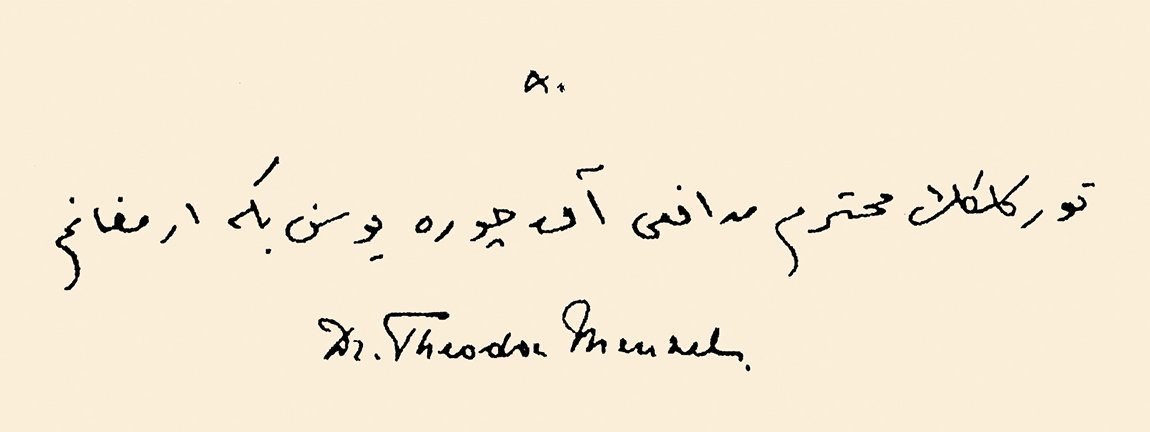 توركلكڭ محترم مدافعی آق چوره یوسف بكه ارمغانم
Dr. Theodor Menzel.